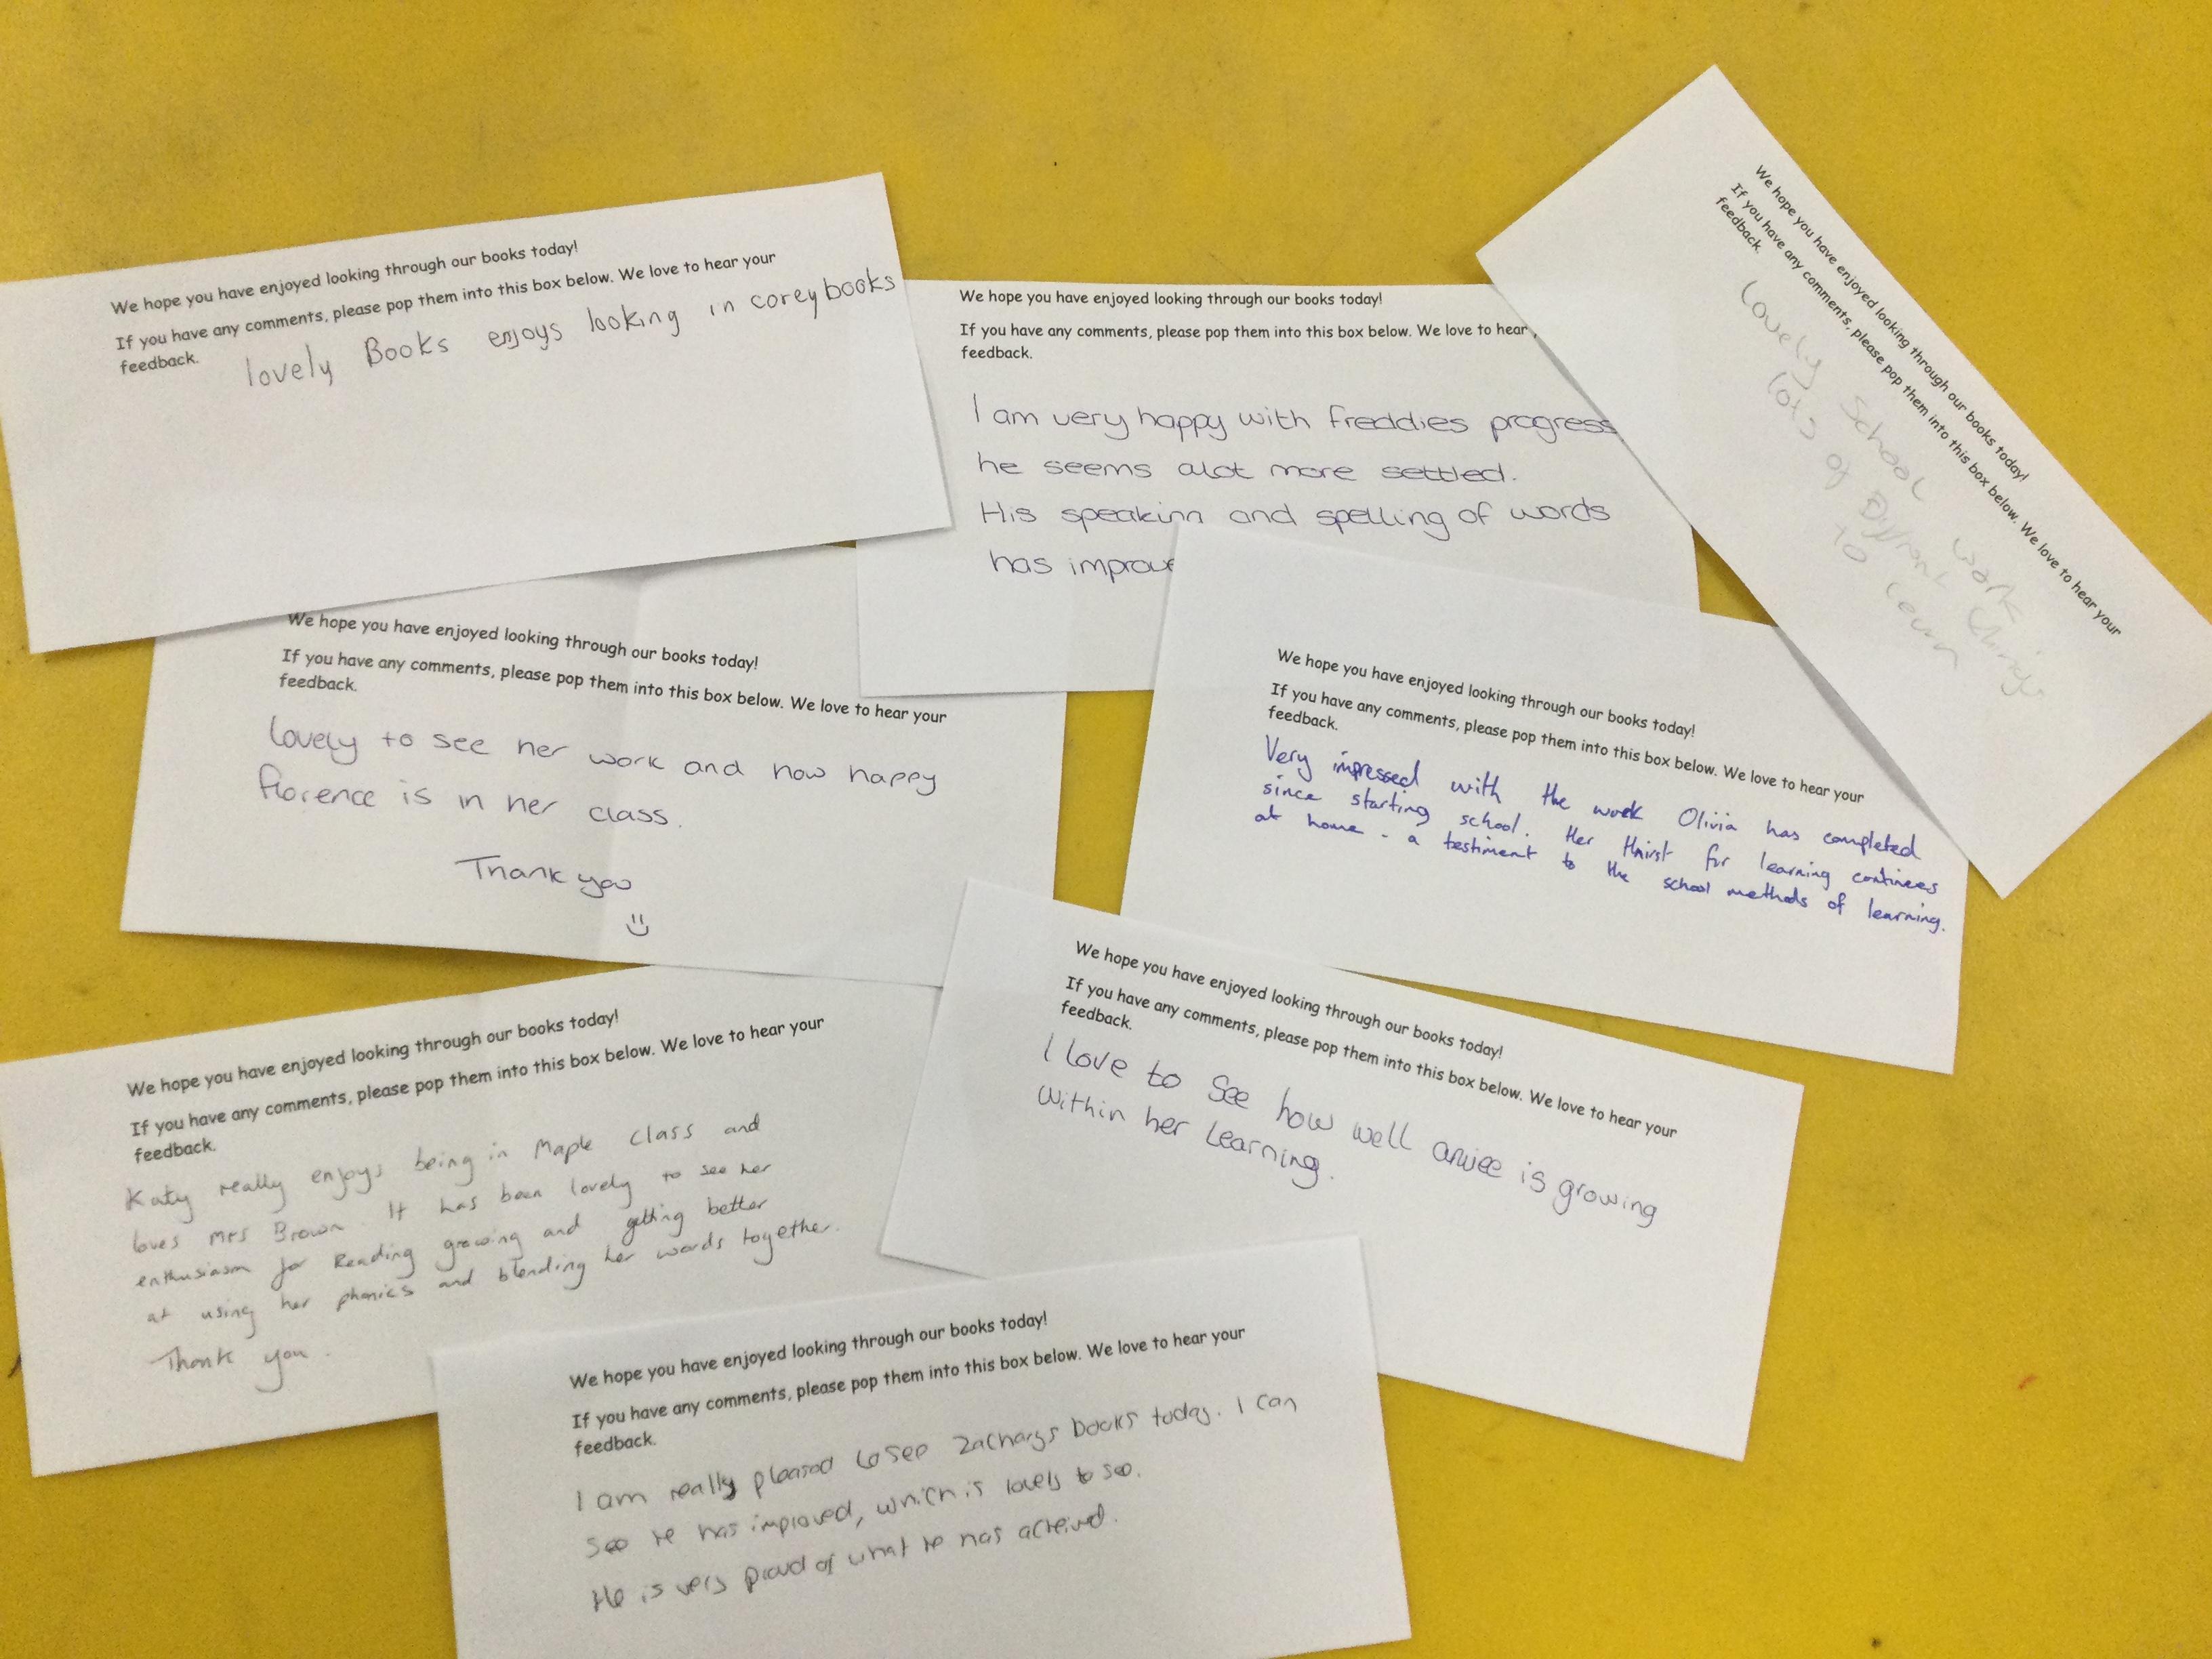 We hope you have enjoyed looking through our books today!
If you have any comments, please pop them into this box below. We love to hear your
feedback.
lovely Books enjoys looking in corey books
We hope you have enjoyed looking through our books today!
If you have any comments, please pop them into this box below. We love to hear
feedback.
I am very happy with freddies progress
he seems alot more settled.
His speaking and spelling of words
has improve
We hope you have enjoyed looking through our books today!
If you have any comments, please pop them into this box below. We love to hear your
feedback.
Lovely School work
lots of Diffrent things
to learn
We hope you have enjoyed looking through our books today!
If you have any comments, please pop them into this box below. We love to hear your
feedback.
Lovely to see her work and how happy
florence is in her class.
Thank you
We hope you have enjoyed looking through our books today!
If you have any comments, please pop them into this box below. We love to hear your
feedback.
Very impressed with the work Olivia has completed
since starting school. Her thirst for learning continues
at home - a testiment to the school methods of learning.
We hope you have enjoyed looking through our books today!
If you have any comments, please pop them into this box below. We love to hear your
feedback.
Katy really enjoys being in Maple Class and
loves Mrs Brown. It has been lovely to see her
enthusiasm for Reading growing and getting better
at using her phonics and blending her words together.
Thank you.
We hope you have enjoyed looking through our books today!
If you have any comments, please pop them into this box below. We love to hear your
feedback.
I love to See how well is growing
within her learning.
We hope you have enjoyed looking through our books today!
If you have any comments, please pop them into this box below. We love to hear your
feedback.
I am really pleased to see Zacharys books today. I can
see he has improved, which is lovely to see.
He is very proud of what he has acheived.